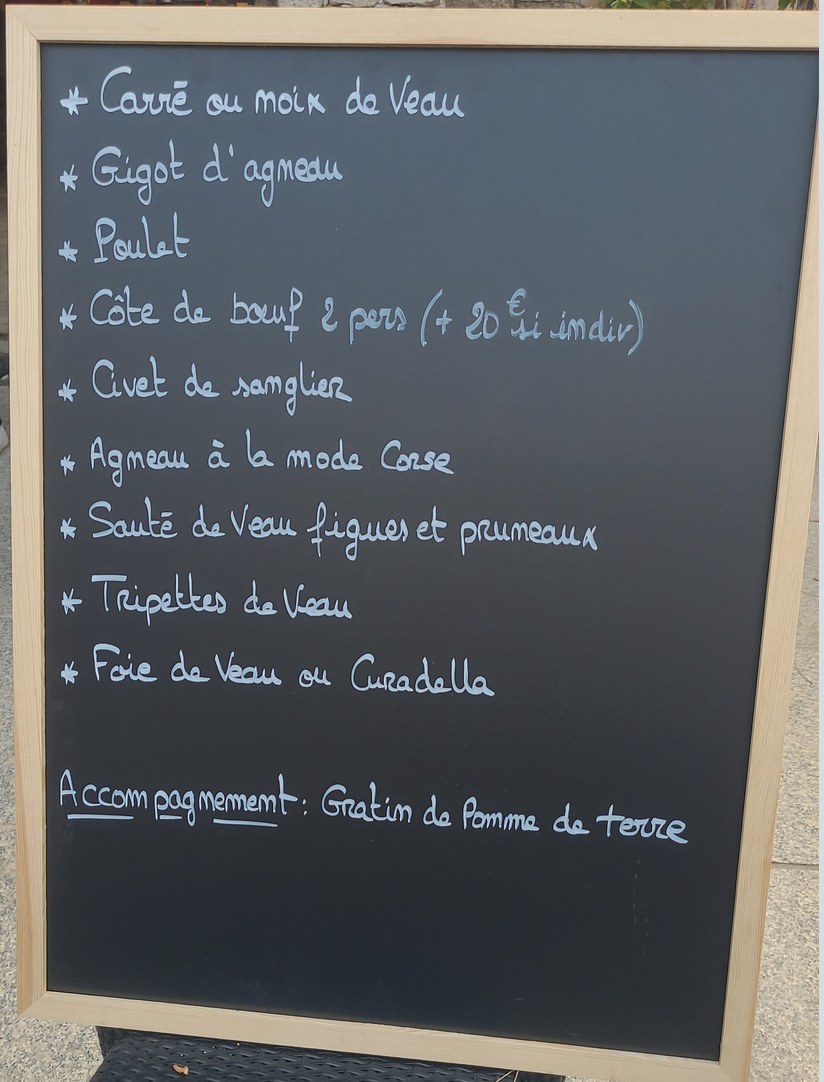 * Carré ou noix de Veau
* Gigot d'agneau
* Poulet
* Côte de bœuf 2 pers (+ 20€ si indiv)
* Civet de sanglier
* Agneau à la mode Corse
* Sauté de Veau figues et pruneaux
* Tripettes de Veau
* Foie de Veau ou Curadella
Accompagnement : Gratin de Pomme de terre